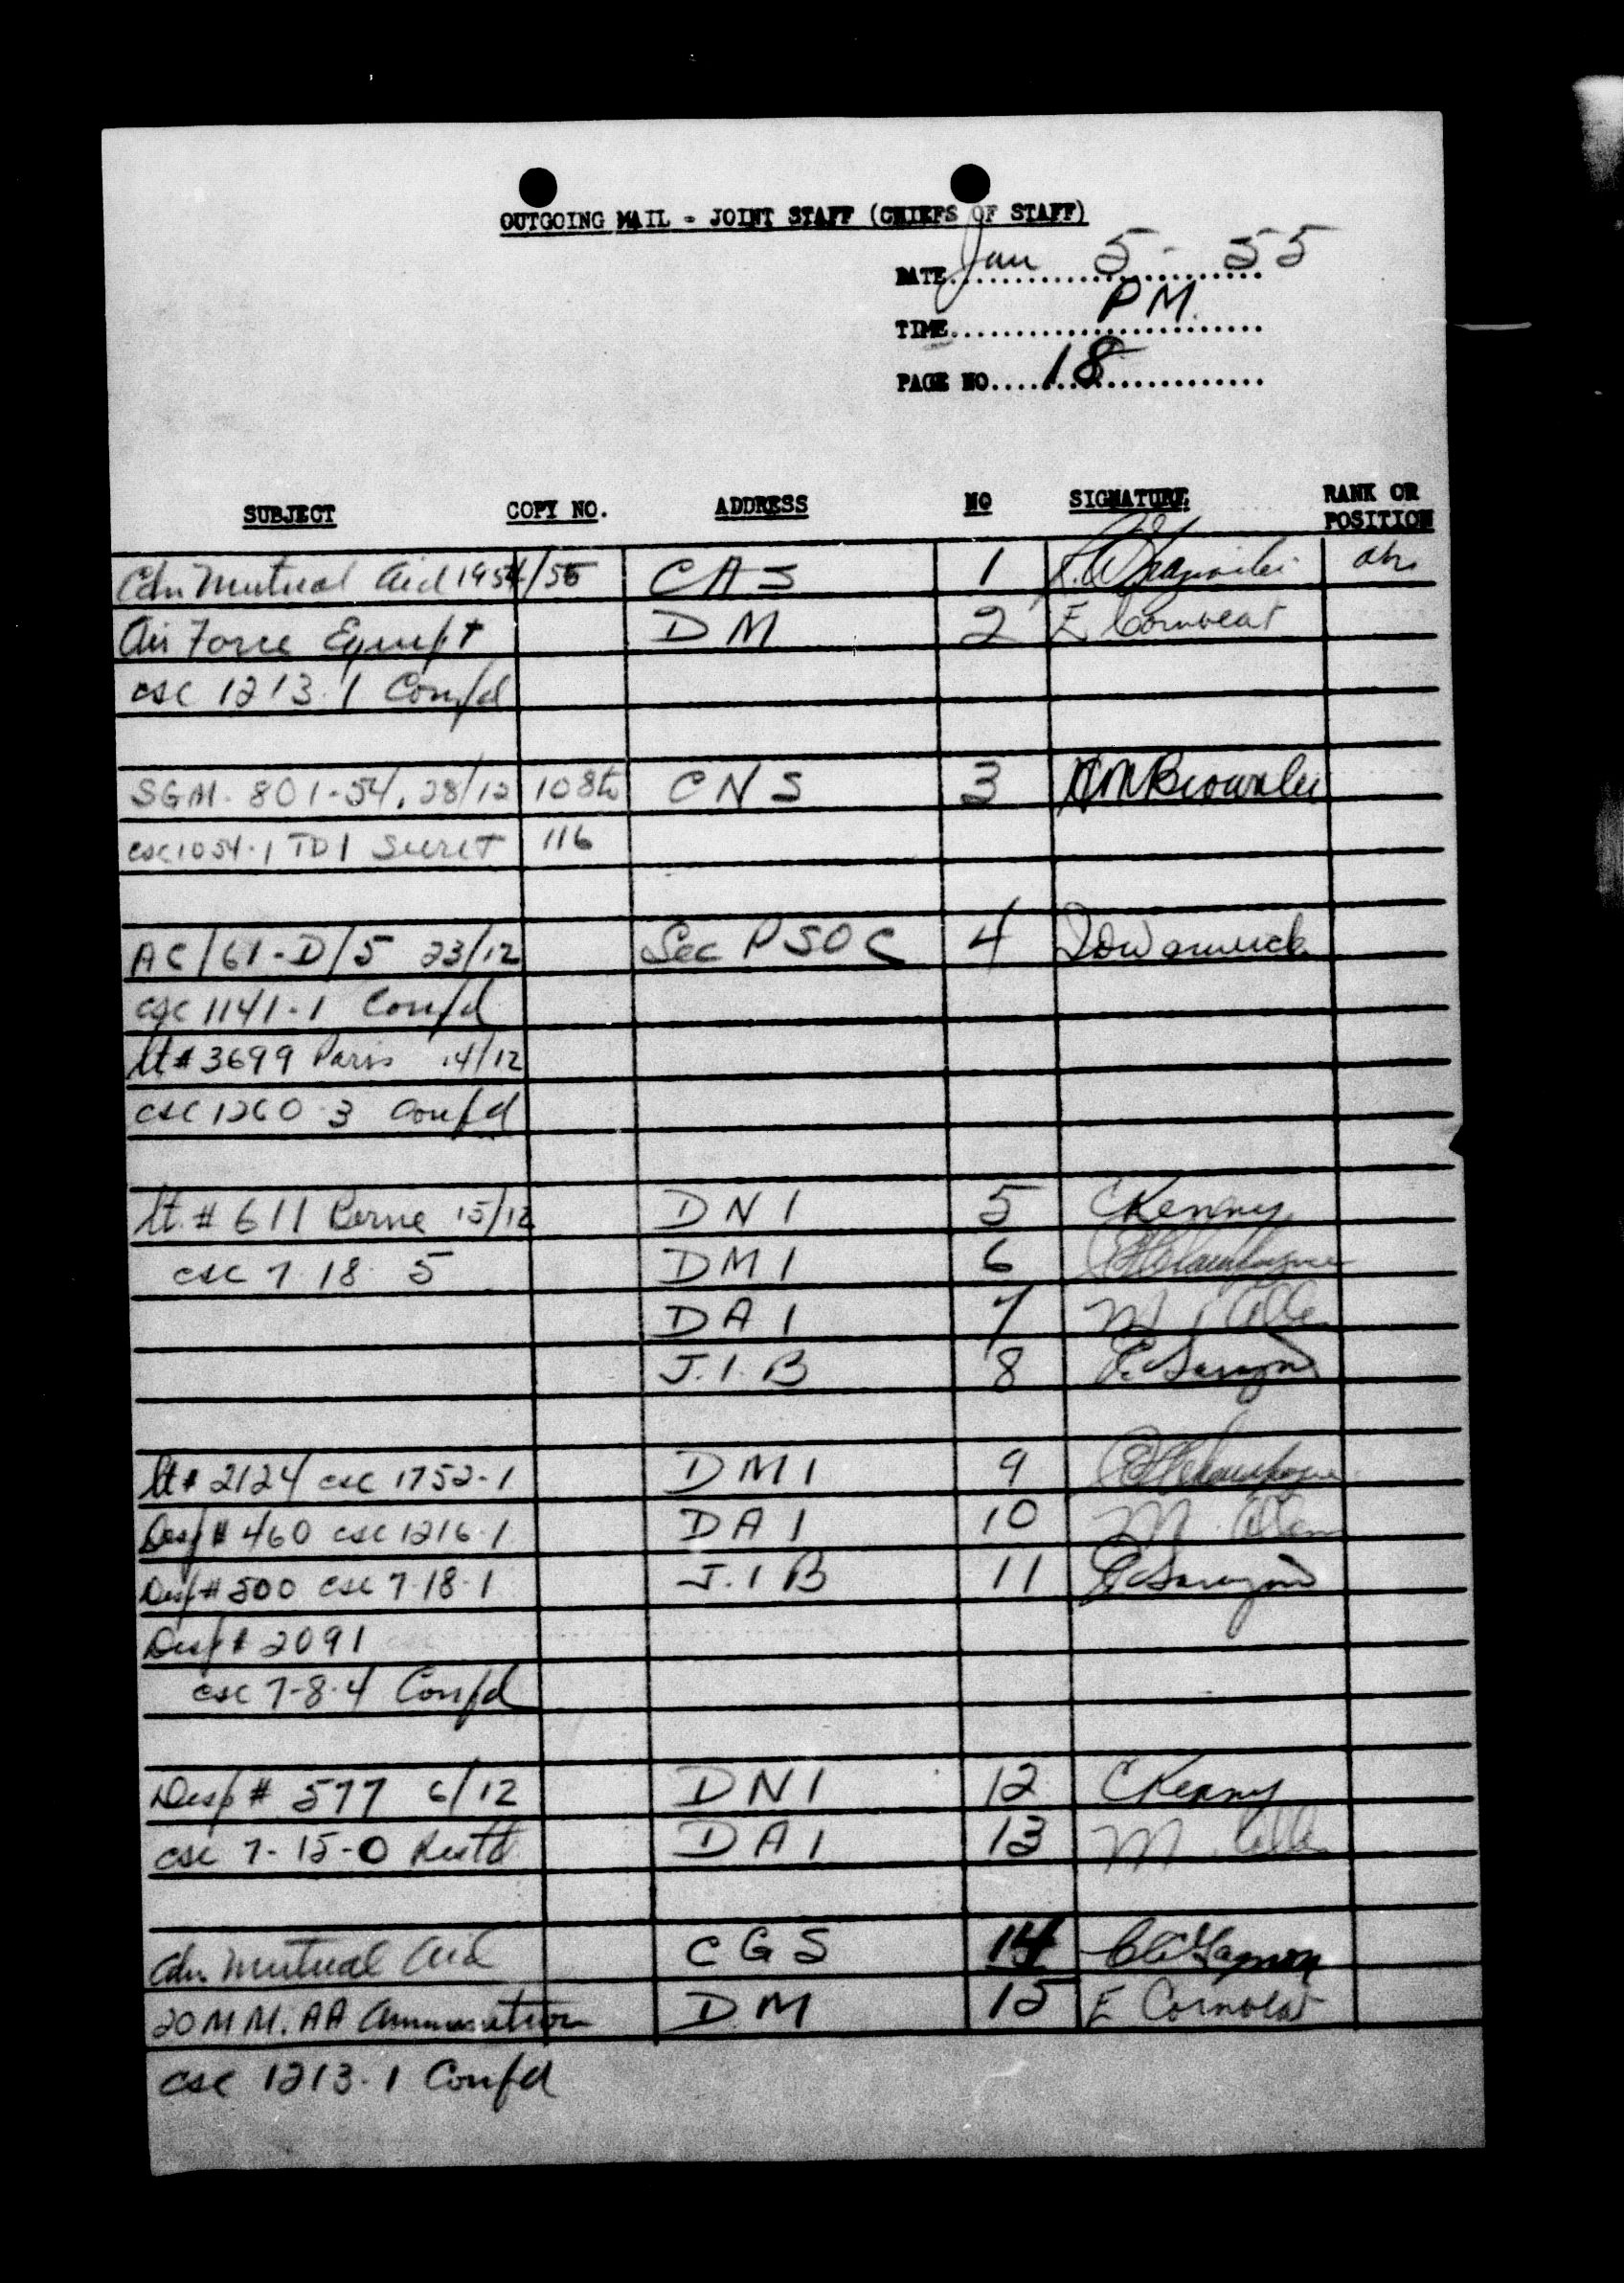 OUTGOING MAIL - JOINT STAFF (CHIEFS OF STAFF)
DATE Jan 5 - 55
TIME PM.
PAGE NO. 18
SUBJECT COPY NO. ADDRESS NO SIGNATURE RANK OR POSITION
Cdn Mutual Aid 1954/55 CAS 1
Air Force Equipt DM 2 E Cornveat
csc 1213.1 Confd
SGM. 801-54, 28/12 108 to CNS 3 Brownlee
csc 1054.1 TD1 Secret 116
AC/61-D/5 23/12 Sec PSOC 4 Warwick
csc 1141-1 Confd
lt # 3699 Paris 14/12
csc 1260-3 Confd
lt. # 611 Berne 15/12 DNI 5 C Kenny
csc 7.18.5 DMI 6 Champagne
DAI 7 M Allen
J.I.B 8
lt # 2124 csc 1752-1 DMI 9 Champagne
Desp # 460 csc 1216.1 DAI 10 M. Allen
Desp # 500 csc 7-18-1 J.I B 11
Desp # 2091
csc 7-8-4 Confd
Desp # 577 6/12 DNI 12 C Kenny
csc 7-15-0 Restd DAI 13 M. Allen
Cdn. Mutual Aid CGS 14
20 MM. AA Ammunition DM 15 E Cornveat
csc 1213.1 Confd